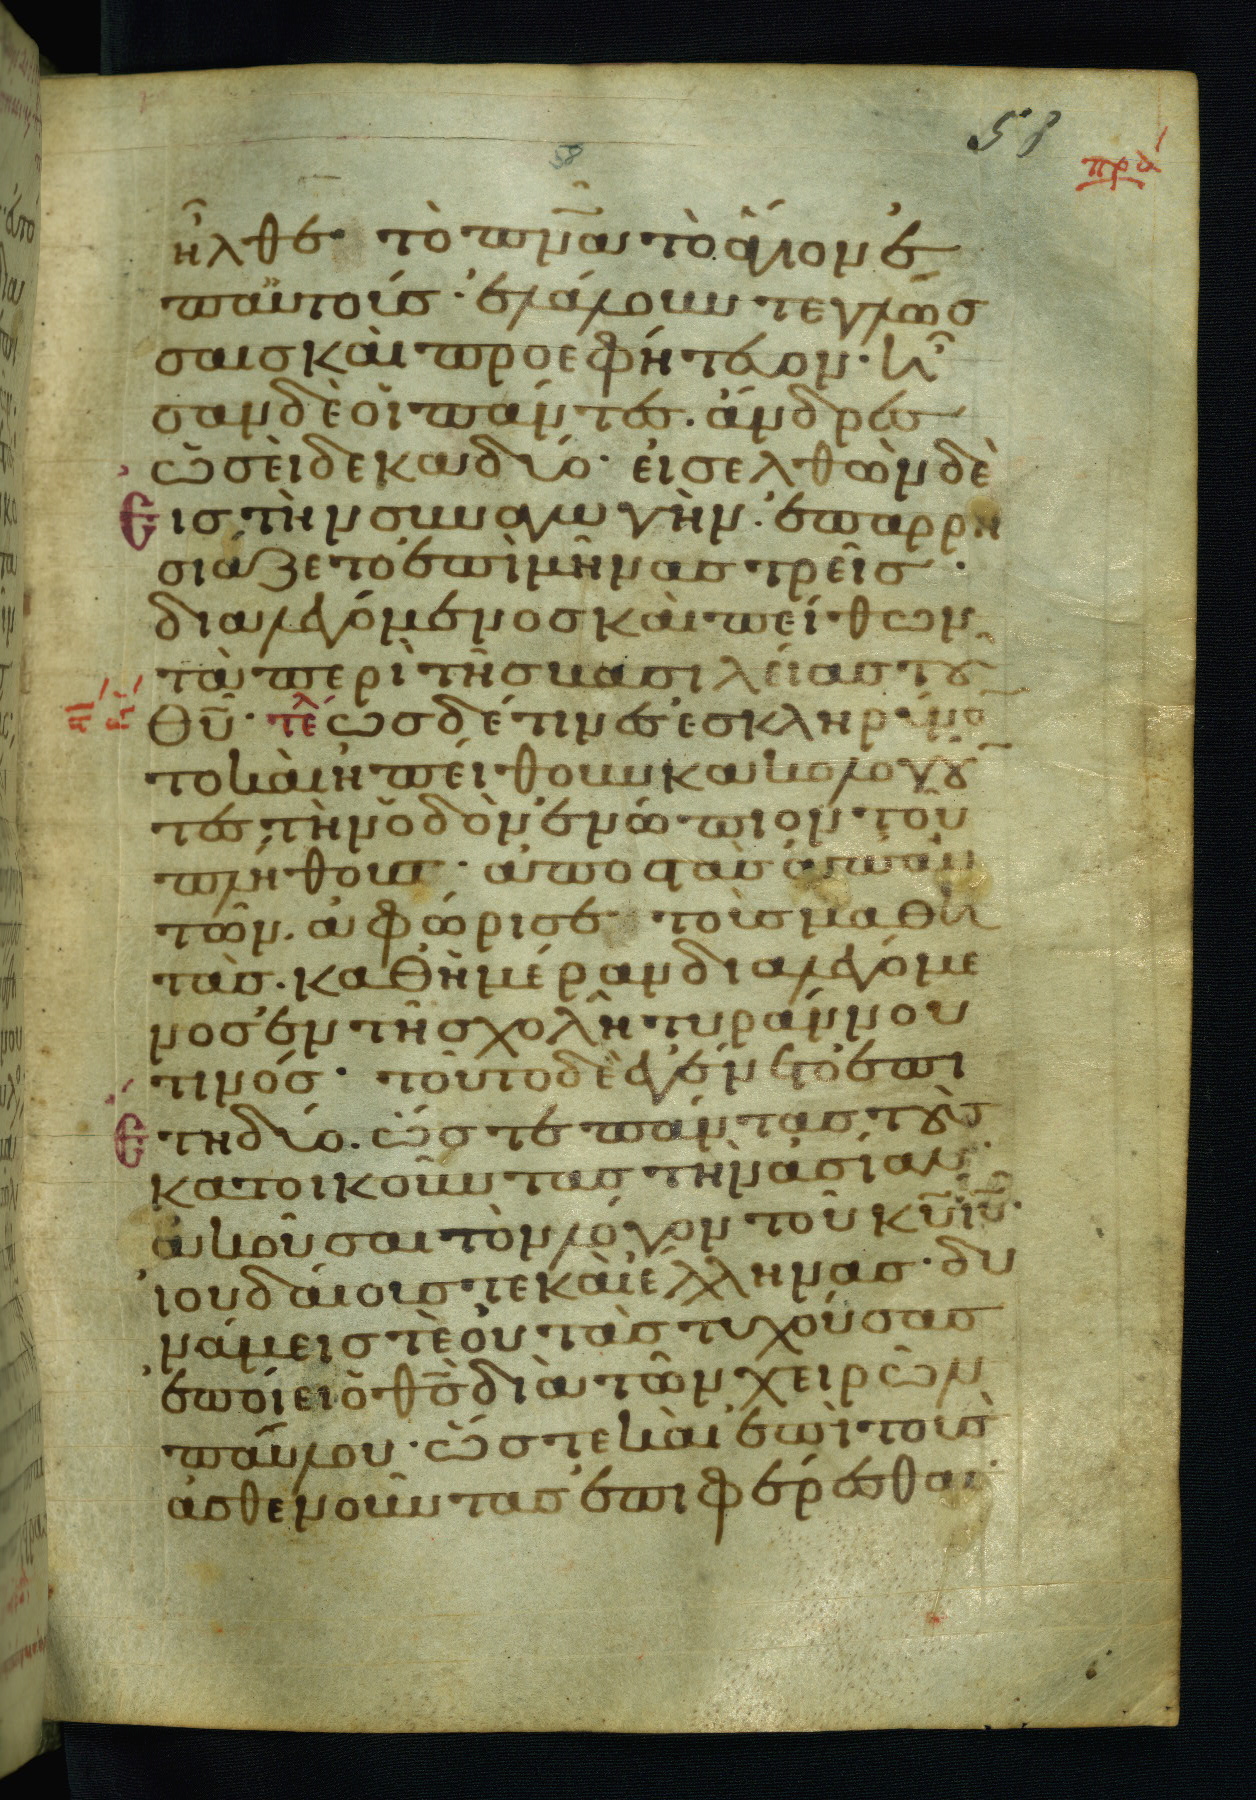 58
58
πρα
ἦλθε τὸ πνα τὸ ἅγιον ἐ
π αὐτούς· ἐλάλουν τε γλώσ
σαις καὶ προεφήτευον· ἦ
σαν δὲ οἱ πάντες ἄνδρες
ὡσεὶ δεκαδύο· εἰσελθὼν δὲ
εἰς τὴν συναγωγὴν· ἐπαρρη
σιάζετο ἐπὶ μῆνας τρεῖς·
διαλεγόμενος καὶ πείθων
τὰ περὶ τῆς βασιλείας τοῦ
θυ· τε ὡς δέ τινες ἐσκληρύνο
το καὶ ἠπείθουν κακολογοῦ
τες τὴν ὁδὸν ἐνώπιον τοῦ
πλήθους· ἀποστὰς ἀπ αὐ
τῶν. ἀφώρισε τοὺς μαθη
τάς. καθ ἡμέραν διαλεγόμε
νος ἐν τῆ σχολῆ τυράννου
τινός· τοῦτο δὲ ἐγένετο ἐπὶ
ἔτη δύο. ὥστε πάντας τοὺς
κατοικοῦντας τὴν ἀσίαν
ἀκοῦσαι τὸν λόγον τοῦ κυ ιυ·
ἰουδαίους τε καὶ ἕλληνας· δυ
νάμεις τὲ οὐ τὰς τυχούσας
ἐποίει ὁ θς διὰ τῶν χειρῶν
παύλου· ὥστε καὶ ἐπὶ τοὺς
ἀσθενοῦντας ἐπιφέρεσθαι